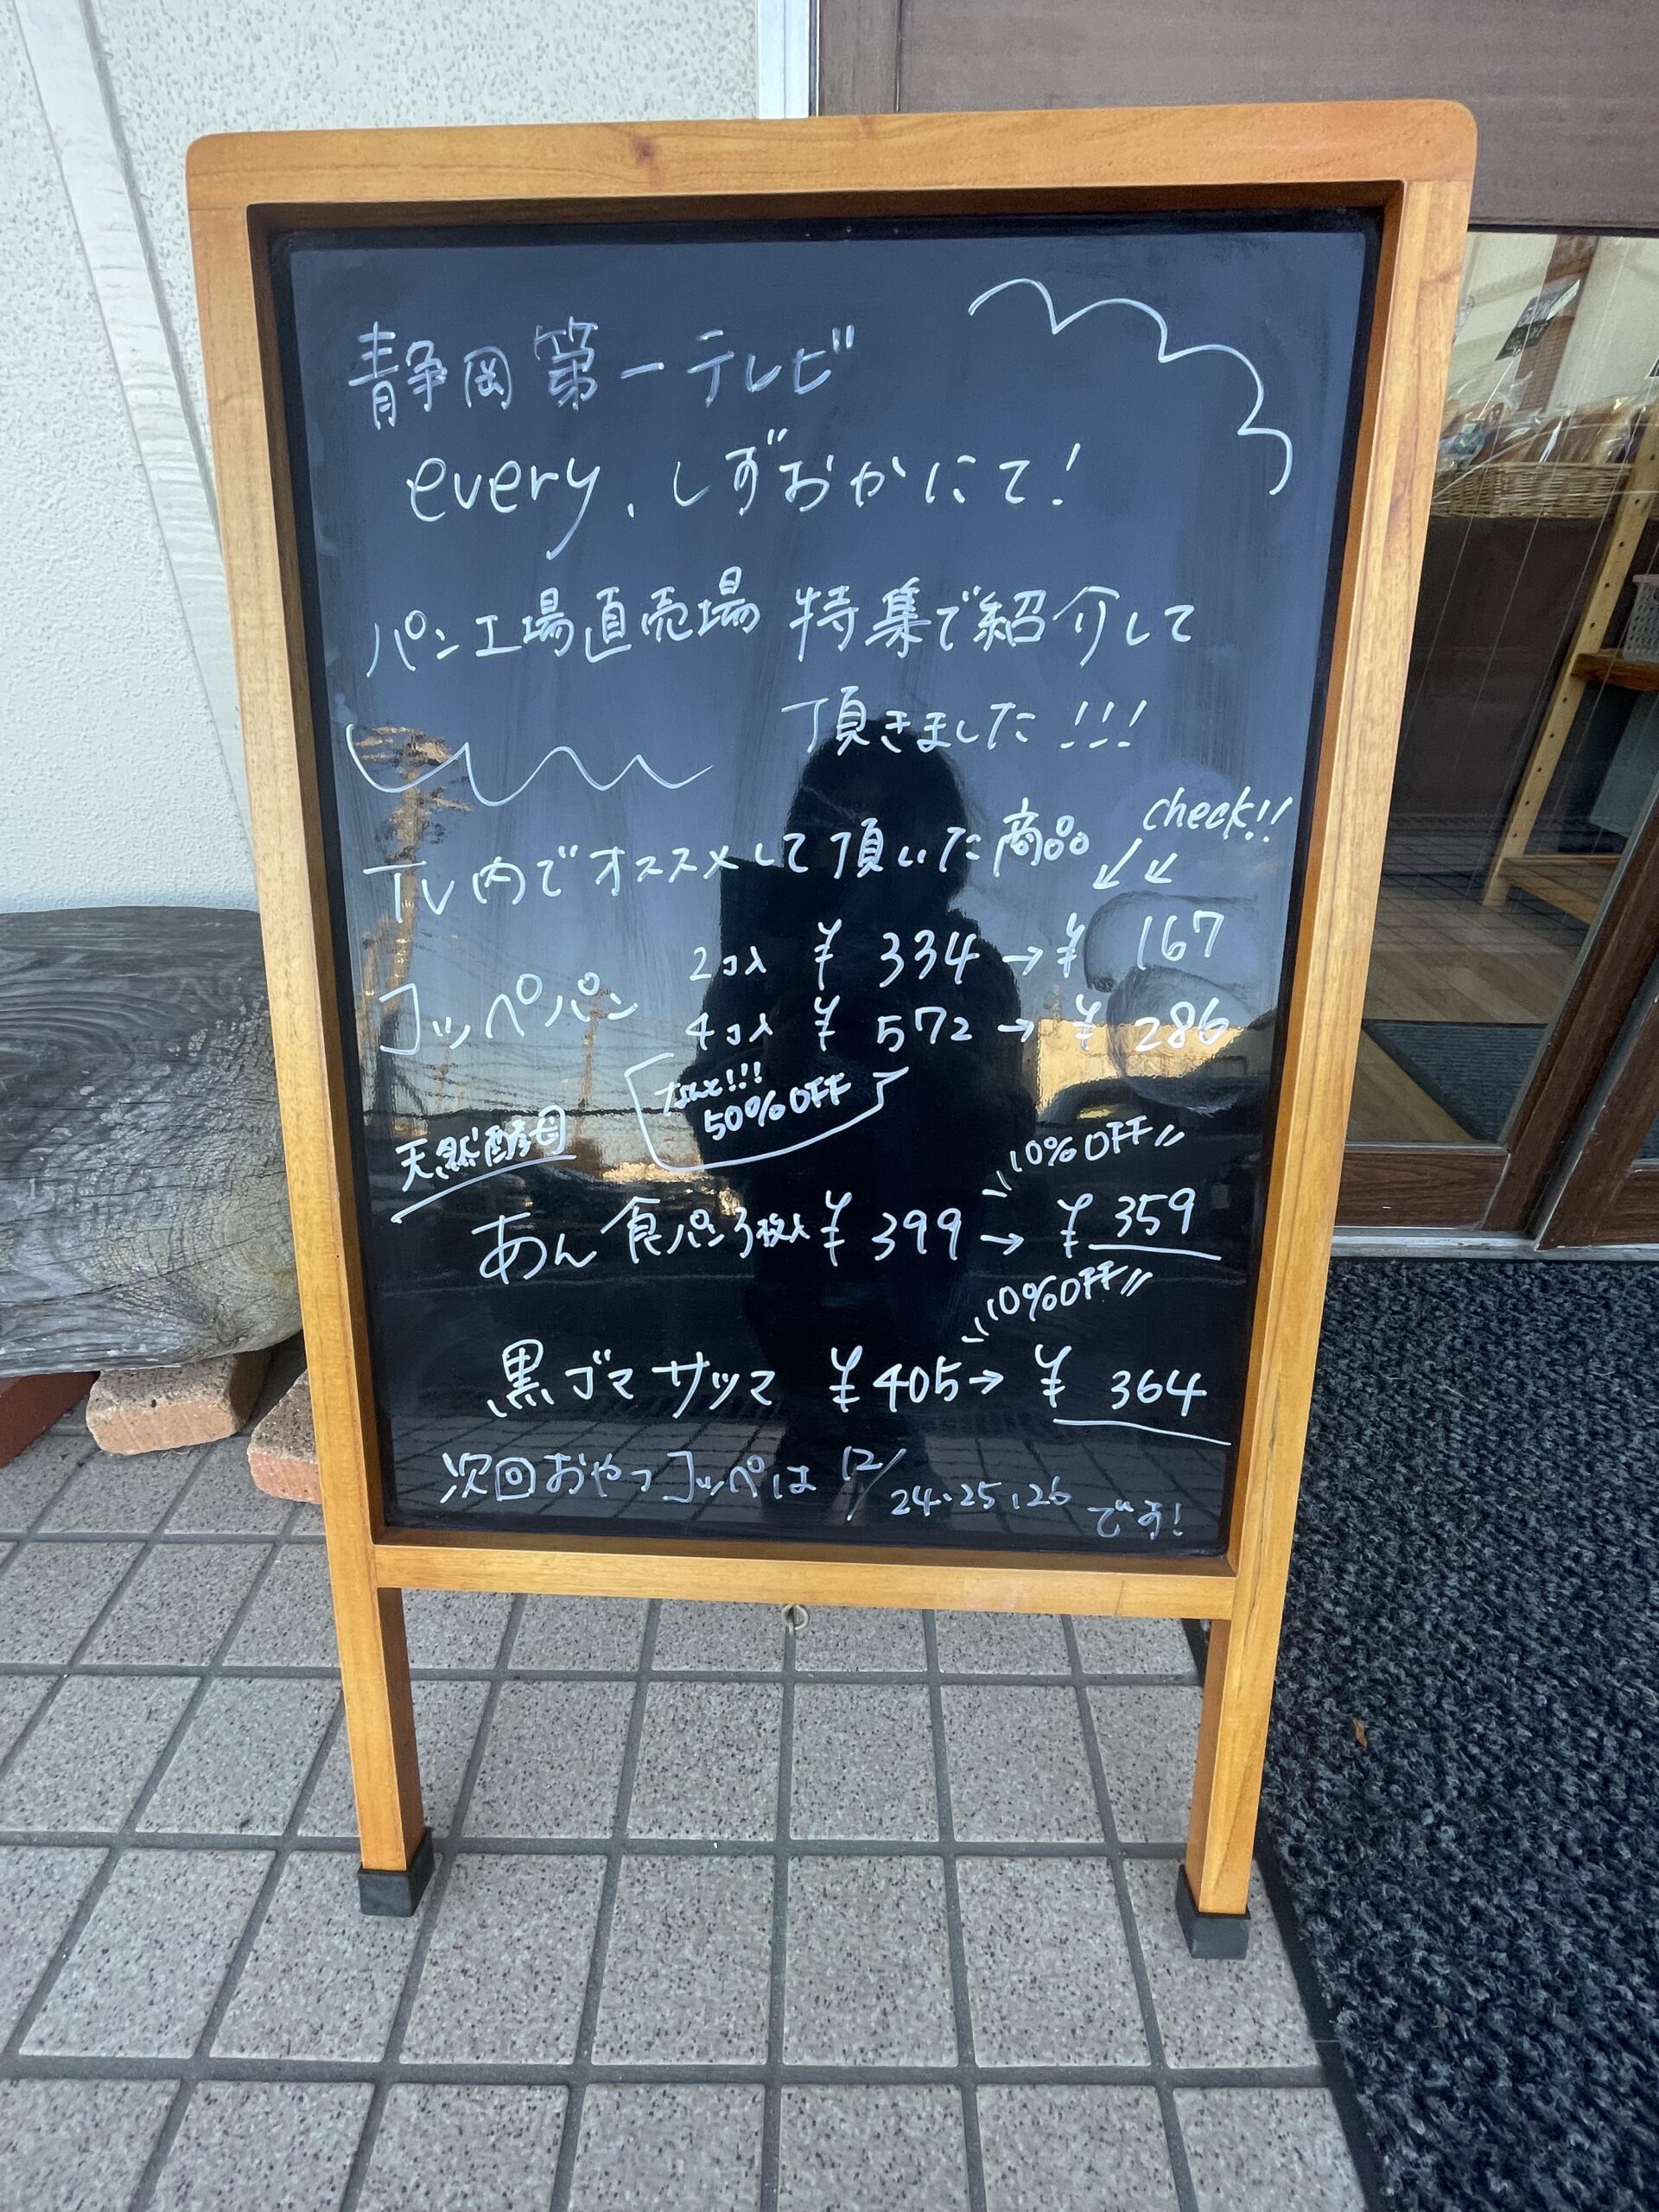 静岡第一テレビ
every.しずおかにて!
パン工場直売場 特集で紹介して
頂きました!!!
check!!
TV内でオススメして頂いた商品
コッペパン 2コ入 ¥334→¥167
4コ入 ¥572→¥286
なんと!!!
50%OFF
天然酵母
10%OFF
あん食パン3枚入¥399→¥359
10%OFF
黒ゴマサツマ ¥405→¥364
次回おやつコッペは 12/24.25.26です!